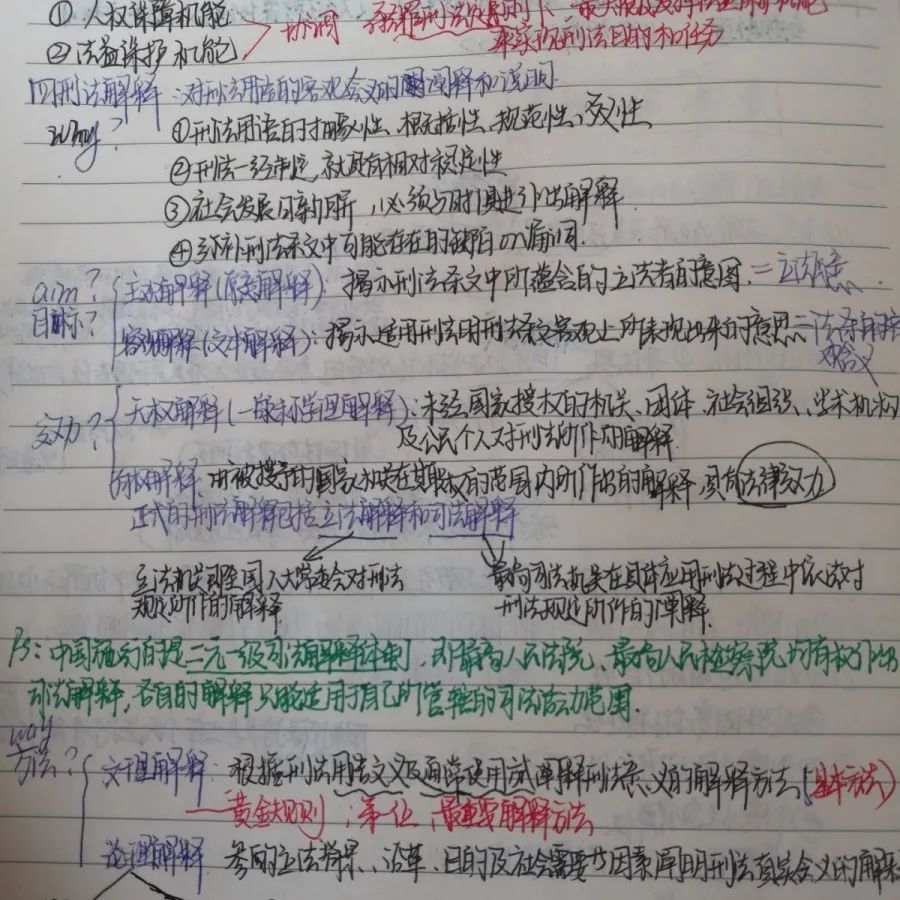 ① 人权保障机能
② 法益保护机能
协调
率实现刑法目的和任务
四 刑法解释：对刑法用语的客观含义的阐释和说明.
why?
①刑法用语的抽象性、概括性、规范性、多义性
②刑法一经制定，就具有相对稳定性
③社会发展日新月异，必须与时俱进作出解释
④弥补刑法条文中可能存在的缺陷 or 漏洞.
aim? 目标?
主观解释(原意解释)：揭示刑法条文中所蕴含的立法者的意图.=立法原意
客观解释(文本解释)：揭示适用刑法时刑法条文客观上所表现出来的意思=法条的
含义
效力?
无权解释(一般称学理解释)：未经国家授权的机关、团体、社会组织、学术机构
及公民个人对刑法所作的解释.
有权解释：由被授权的国家机关在其职权的范围内所作出的解释，具有法律效力
正式的刑法解释包括立法解释和司法解释
立法机关即全国人大常委会对刑法
规定所作的解释
最高司法机关在具体应用刑法过程中依法对
刑法规定所作的阐释.
PS：中国施行的是二元一级司法解释体制，即最高人民法院、最高人民检察院均有权作出
司法解释，各自的解释只能适用于自己所管辖的司法活动范围.
way 方法?
文理解释：根据刑法用语文义及通常使用 解释刑法条 义的解释方法(基本方法)
黄金规则，第一位，最重要解释方法
论理解释 参酌立法背景、沿革、目的及社会需要等因素阐明刑法真实含义的解释